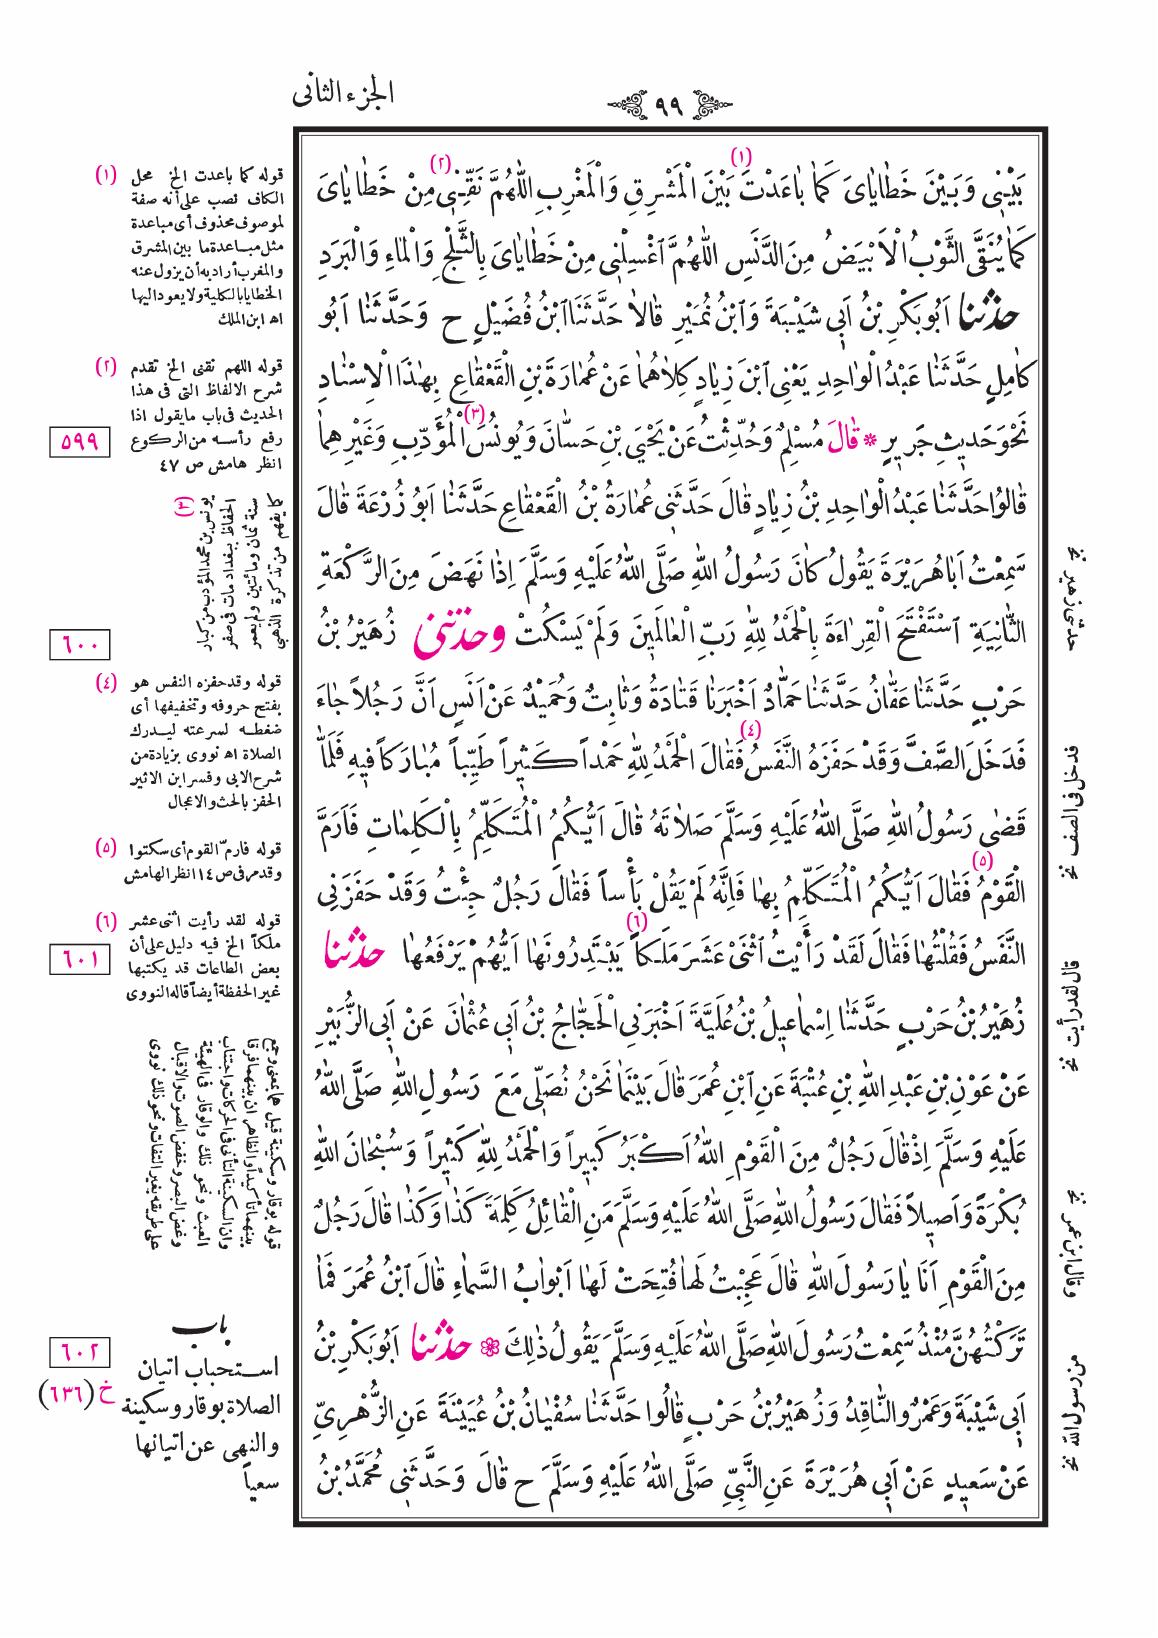 الجزء الثانى
٩٩
بَيْنِى وَبَيْنَ خَطَايَاىَ كَمَا بَاعَدْتَ (١) بَيْنَ الْمَشْرِقِ وَالْمَغْرِبِ اللّٰهُمَّ نَقِّنِى (٢) مِنْ خَطَايَاىَ
كَمَا يُنَقَّى الثَّوْبُ الْاَبْيَضُ مِنَ الدَّنَسِ اللّٰهُمَّ اغْسِلْنِى مِنْ خَطَايَاىَ بِالثَّلْجِ وَالْمَاءِ وَالْبَرَدِ
حدثنا اَبُو بَكْرِ بْنُ اَبِى شَيْبَةَ وَابْنُ نُمَيْرٍ قَالَا حَدَّثَنَا ابْنُ فُضَيْلٍ ح وَحَدَّثَنَا اَبُو
كَامِلٍ حَدَّثَنَا عَبْدُ الْوَاحِدِ يَعْنِى ابْنَ زِيَادٍ كِلَاهُمَا عَنْ عُمَارَةَ بْنِ الْقَعْقَاعِ بِهٰذَا الْاِسْنَادِ
نَحْوَ حَدِيثِ جَرِيرٍ * قَالَ مُسْلِمٌ وَحُدِّثْتُ عَنْ يَحْيَى بْنِ حَسَّانَ وَيُونُسَ (٣) الْمُؤَدِّبِ وَغَيْرِهِمَا
قَالُوا حَدَّثَنَا عَبْدُ الْوَاحِدِ بْنُ زِيَادٍ قَالَ حَدَّثَنِى عُمَارَةُ بْنُ الْقَعْقَاعِ حَدَّثَنَا اَبُو زُرْعَةَ قَالَ
سَمِعْتُ اَبَا هُرَيْرَةَ يَقُولُ كَانَ رَسُولُ اللّٰهِ صَلَّى اللّٰهُ عَلَيْهِ وَسَلَّمَ اِذَا نَهَضَ مِنَ الرَّكْعَةِ
الثَّانِيَةِ اسْتَفْتَحَ الْقِرَاءَةَ بِالْحَمْدُ لِلّٰهِ رَبِّ الْعَالَمِينَ وَلَمْ يَسْكُتْ وحدثنى زُهَيْرُ بْنُ
حَرْبٍ حَدَّثَنَا عَفَّانُ حَدَّثَنَا حَمَّادٌ اَخْبَرَنَا قَتَادَةُ وَثَابِتٌ وَحُمَيْدٌ عَنْ اَنَسٍ اَنَّ رَجُلاً جَاءَ
فَدَخَلَ الصَّفَّ وَقَدْ حَفَزَهُ النَّفَسُ (٤) فَقَالَ الْحَمْدُ لِلّٰهِ حَمْداً كَثِيراً طَيِّباً مُبَارَكاً فِيهِ فَلَمَّا
قَضٰى رَسُولُ اللّٰهِ صَلَّى اللّٰهُ عَلَيْهِ وَسَلَّمَ صَلَاتَهُ قَالَ اَيُّكُمُ الْمُتَكَلِّمُ بِالْكَلِمَاتِ فَاَرَمَّ
الْقَوْمُ (٥) فَقَالَ اَيُّكُمُ الْمُتَكَلِّمُ بِهَا فَاِنَّهُ لَمْ يَقُلْ بَأْساً فَقَالَ رَجُلٌ جِئْتُ وَقَدْ حَفَزَنِى
النَّفَسُ فَقُلْتُهَا فَقَالَ لَقَدْ رَأَيْتُ اثْنَىْ عَشَرَ مَلَكاً (٦) يَبْتَدِرُونَهَا اَيُّهُمْ يَرْفَعُهَا حدثنا
زُهَيْرُ بْنُ حَرْبٍ حَدَّثَنَا اِسْمَاعِيلُ بْنُ عُلَيَّةَ اَخْبَرَنِى الْحَجَّاجُ بْنُ اَبِى عُثْمَانَ عَنْ اَبِى الزُّبَيْرِ
عَنْ عَوْنِ بْنِ عَبْدِ اللّٰهِ بْنِ عُتْبَةَ عَنِ ابْنِ عُمَرَ قَالَ بَيْنَمَا نَحْنُ نُصَلِّى مَعَ رَسُولِ اللّٰهِ صَلَّى اللّٰهُ
عَلَيْهِ وَسَلَّمَ اِذْ قَالَ رَجُلٌ مِنَ الْقَوْمِ اللّٰهُ اَكْبَرُ كَبِيراً وَالْحَمْدُ لِلّٰهِ كَثِيراً وَسُبْحَانَ اللّٰهِ
بُكْرَةً وَاَصِيلاً فَقَالَ رَسُولُ اللّٰهِ صَلَّى اللّٰهُ عَلَيْهِ وَسَلَّمَ مَنِ الْقَائِلُ كَلِمَةَ كَذَا وَكَذَا قَالَ رَجُلٌ
مِنَ الْقَوْمِ اَنَا يَا رَسُولَ اللّٰهِ قَالَ عَجِبْتُ لَهَا فُتِحَتْ لَهَا اَبْوَابُ السَّمَاءِ قَالَ ابْنُ عُمَرَ فَمَا
تَرَكْتُهُنَّ مُنْذُ سَمِعْتُ رَسُولَ اللّٰهِ صَلَّى اللّٰهُ عَلَيْهِ وَسَلَّمَ يَقُولُ ذٰلِكَ * حدثنا اَبُو بَكْرِ بْنُ
اَبِى شَيْبَةَ وَعَمْرٌو النَّاقِدُ وَزُهَيْرُ بْنُ حَرْبٍ قَالُوا حَدَّثَنَا سُفْيَانُ بْنُ عُيَيْنَةَ عَنِ الزُّهْرِىِّ
عَنْ سَعِيدٍ عَنْ اَبِى هُرَيْرَةَ عَنِ النَّبِىِّ صَلَّى اللّٰهُ عَلَيْهِ وَسَلَّمَ ح قَالَ وَحَدَّثَنِى مُحَمَّدُ بْنُ
حدثنى زهير نخ
فدخل فى الصف نخ
قال لقد رأيت نخ
وقال ابن عمر نخ
من رسول الله نخ
(١) قوله كما باعدت الخ محل
الكاف نصب على أنه صفة
لموصوف محذوف أى مباعدة
مثل مباعدة ما بين المشرق
والمغرب أراد به أن يزول عنه
الخطايا بالكلية ولا يعود اليها
اه ابن الملك
(٢) قوله اللهم نقنى الخ تقدم
شرح الالفاظ التى فى هذا
الحديث فى باب ما يقول اذا
رفع رأسه من الركوع
انظر هامش ص ٤٧
٥٩٩
(٣) يونس بن محمد المؤدب من كبار
الحفاظ ببغداد مات فى صفر
سنة ثمان ومائتين ولم يعمر
كما يفهم من تذكرة الذهبى
٦٠٠
(٤) قوله وقد حفزه النفس هو
بفتح حروفه وتخفيفها أى
ضغطه لسرعته ليدرك
الصلاة اه نووى بزيادة من
شرح الابى وفسر ابن الاثير
الحفز بالحث والاعجال
(٥) قوله فارمّ القوم أى سكتوا
وقد مر فى ص ١١٤ انظر الهامش
(٦) قوله لقد رأيت اثنى عشر
ملكاً الخ فيه دليل على أن
بعض الطاعات قد يكتبها
غير الحفظة أيضاً قاله النووى
٦٠١
قوله بوقار وسكينة قيل هما بمعنى وجمع
بينهما تأكيداً والظاهر ان بينهما فرقا
وان السكينة التأنى فى الحركات واجتناب
العبث ونحو ذلك والوقار فى الهيئة
وغض البصر وخفض الصوت والاقبال
على طريقه بغير التفات ونحو ذلك نووى
باب
٦٠٢
استحباب اتيان
الصلاة بوقار وسكينة
خ (٦٣٦)
والنهى عن اتيانها
سعياً